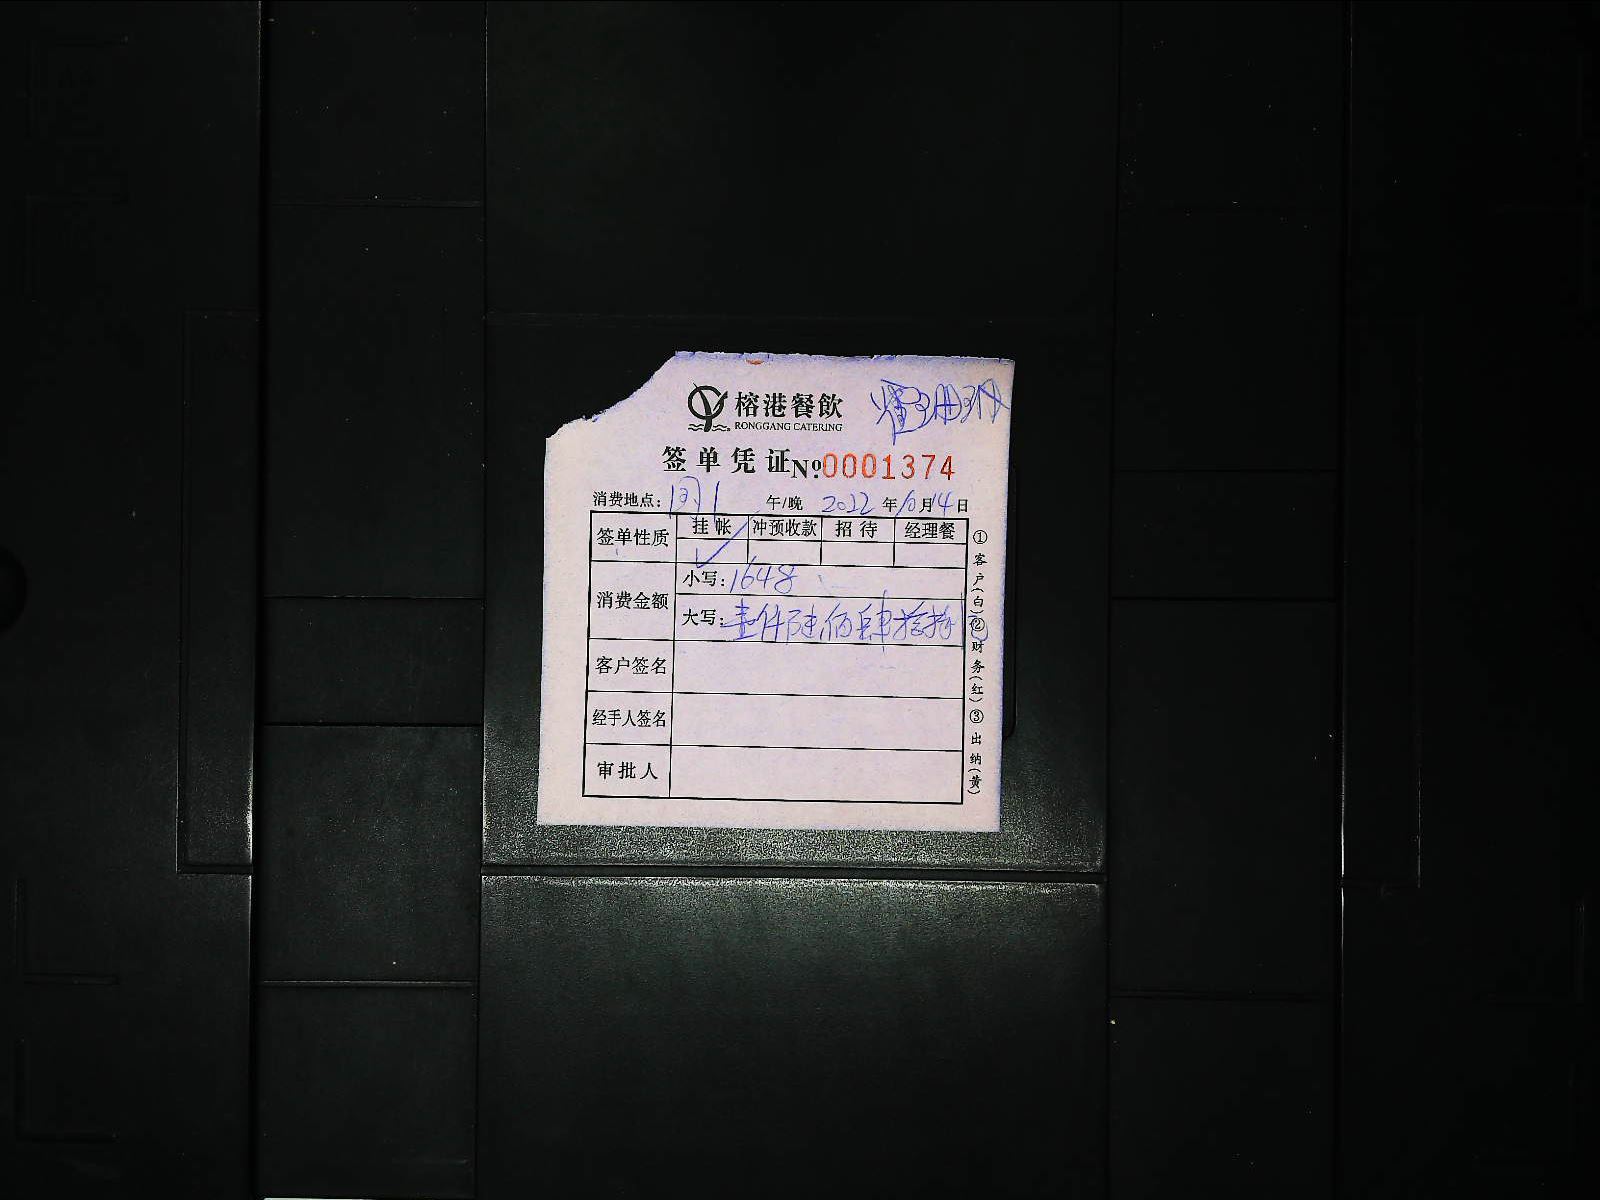 榕港餐飲
RONGGANG CATERING
签单凭证 Nº 0001374
消费地点: 午/晚 2022 年 10 月 14 日
签单性质 挂帐 冲预收款 招待 经理餐
✓
消费金额 小写: 1648
大写: 壹仟陆佰肆拾捌
客户签名
经手人签名
审批人
①客户(白)②财务(红)③出纳(黄)